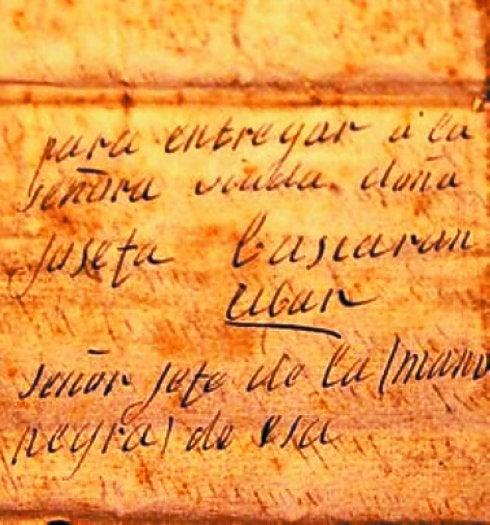 para entregar a la
señora viuda doña
Josefa Bascaran
Eibar
señor Jefe de la (mano
negra) de esa